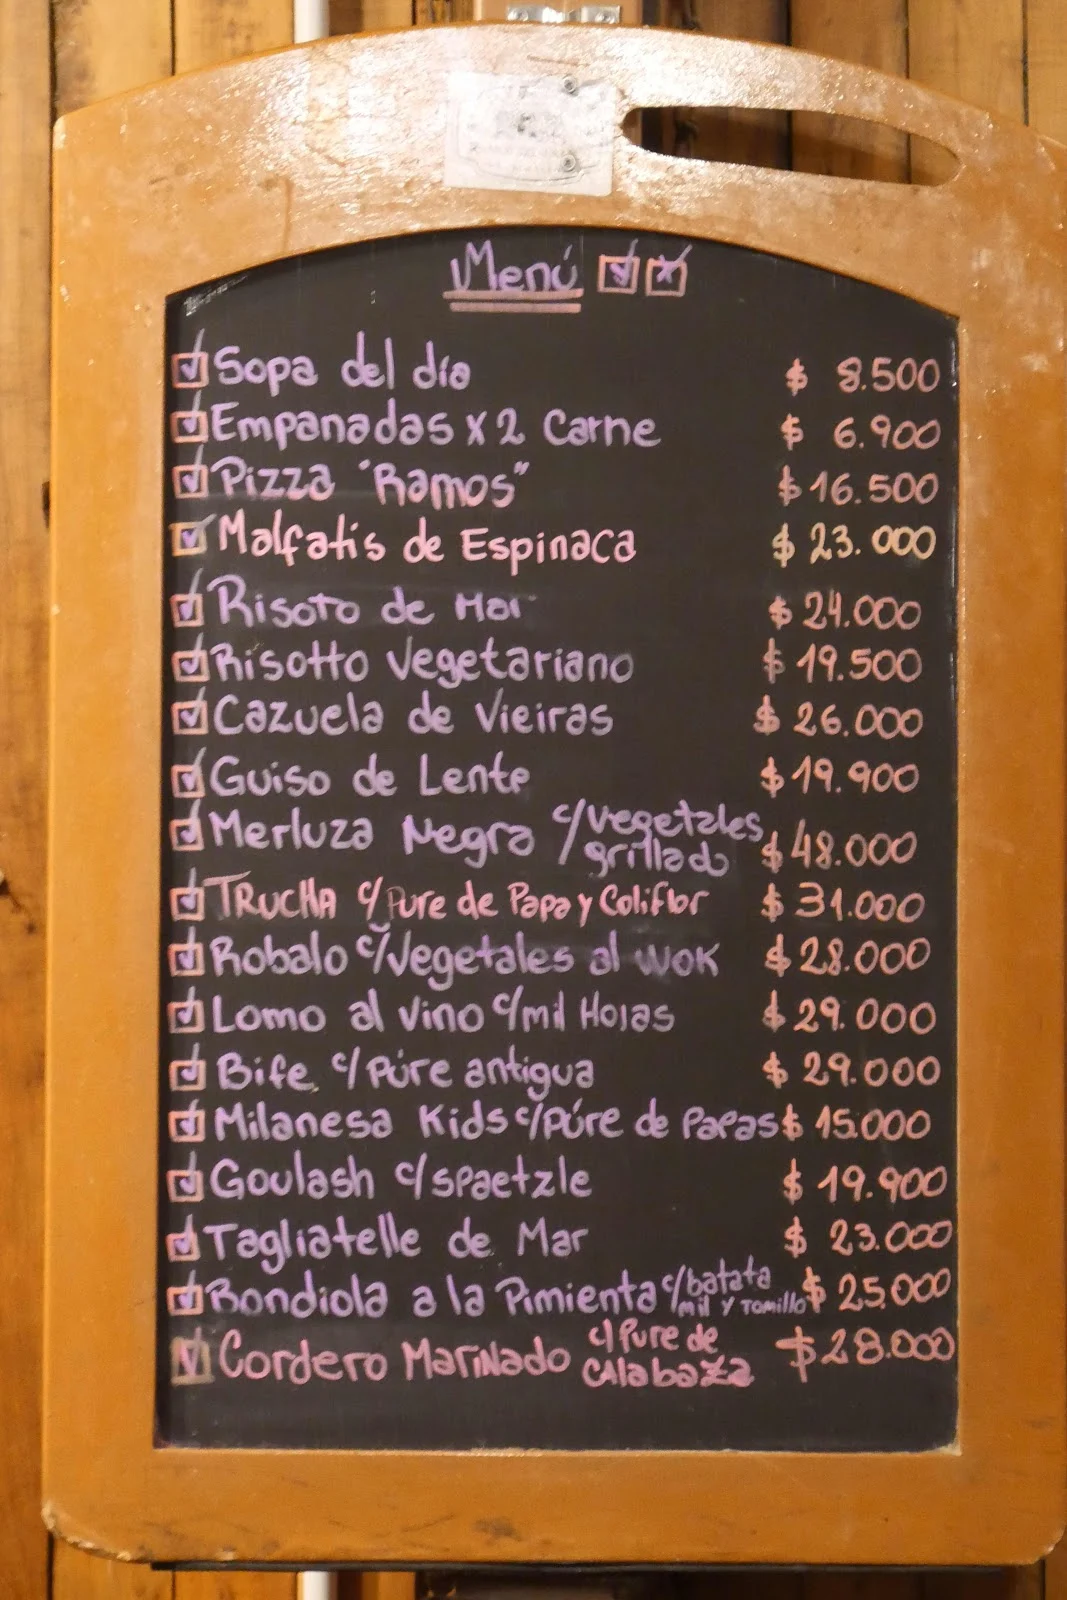 Menú
Sopa del día $ 8.500
Empanadas x 2 Carne $ 6.900
Pizza "Ramos" $ 16.500
Malfatis de Espinaca $ 23.000
Risoto de Mar $ 24.000
Risotto vegetariano $ 19.500
Cazuela de Vieiras $ 26.000
Guiso de Lente $ 19.900
Merluza Negra c/vegetales grillado $ 48.000
TRUCHA c/Pure de Papa y Coliflor $ 31.000
Robalo c/Vegetales al WOK $ 28.000
Lomo al vino c/mil Hojas $ 29.000
Bife c/ Púre antigua $ 29.000
Milanesa Kids c/púre de Papas $ 15.000
Goulash c/spaetzle $ 19.900
Tagliatelle de Mar $ 23.000
Bondiola a la Pimienta c/batata mil y Tomillo $ 25.000
Cordero Marinado c/Pure de Calabaza $ 28.000